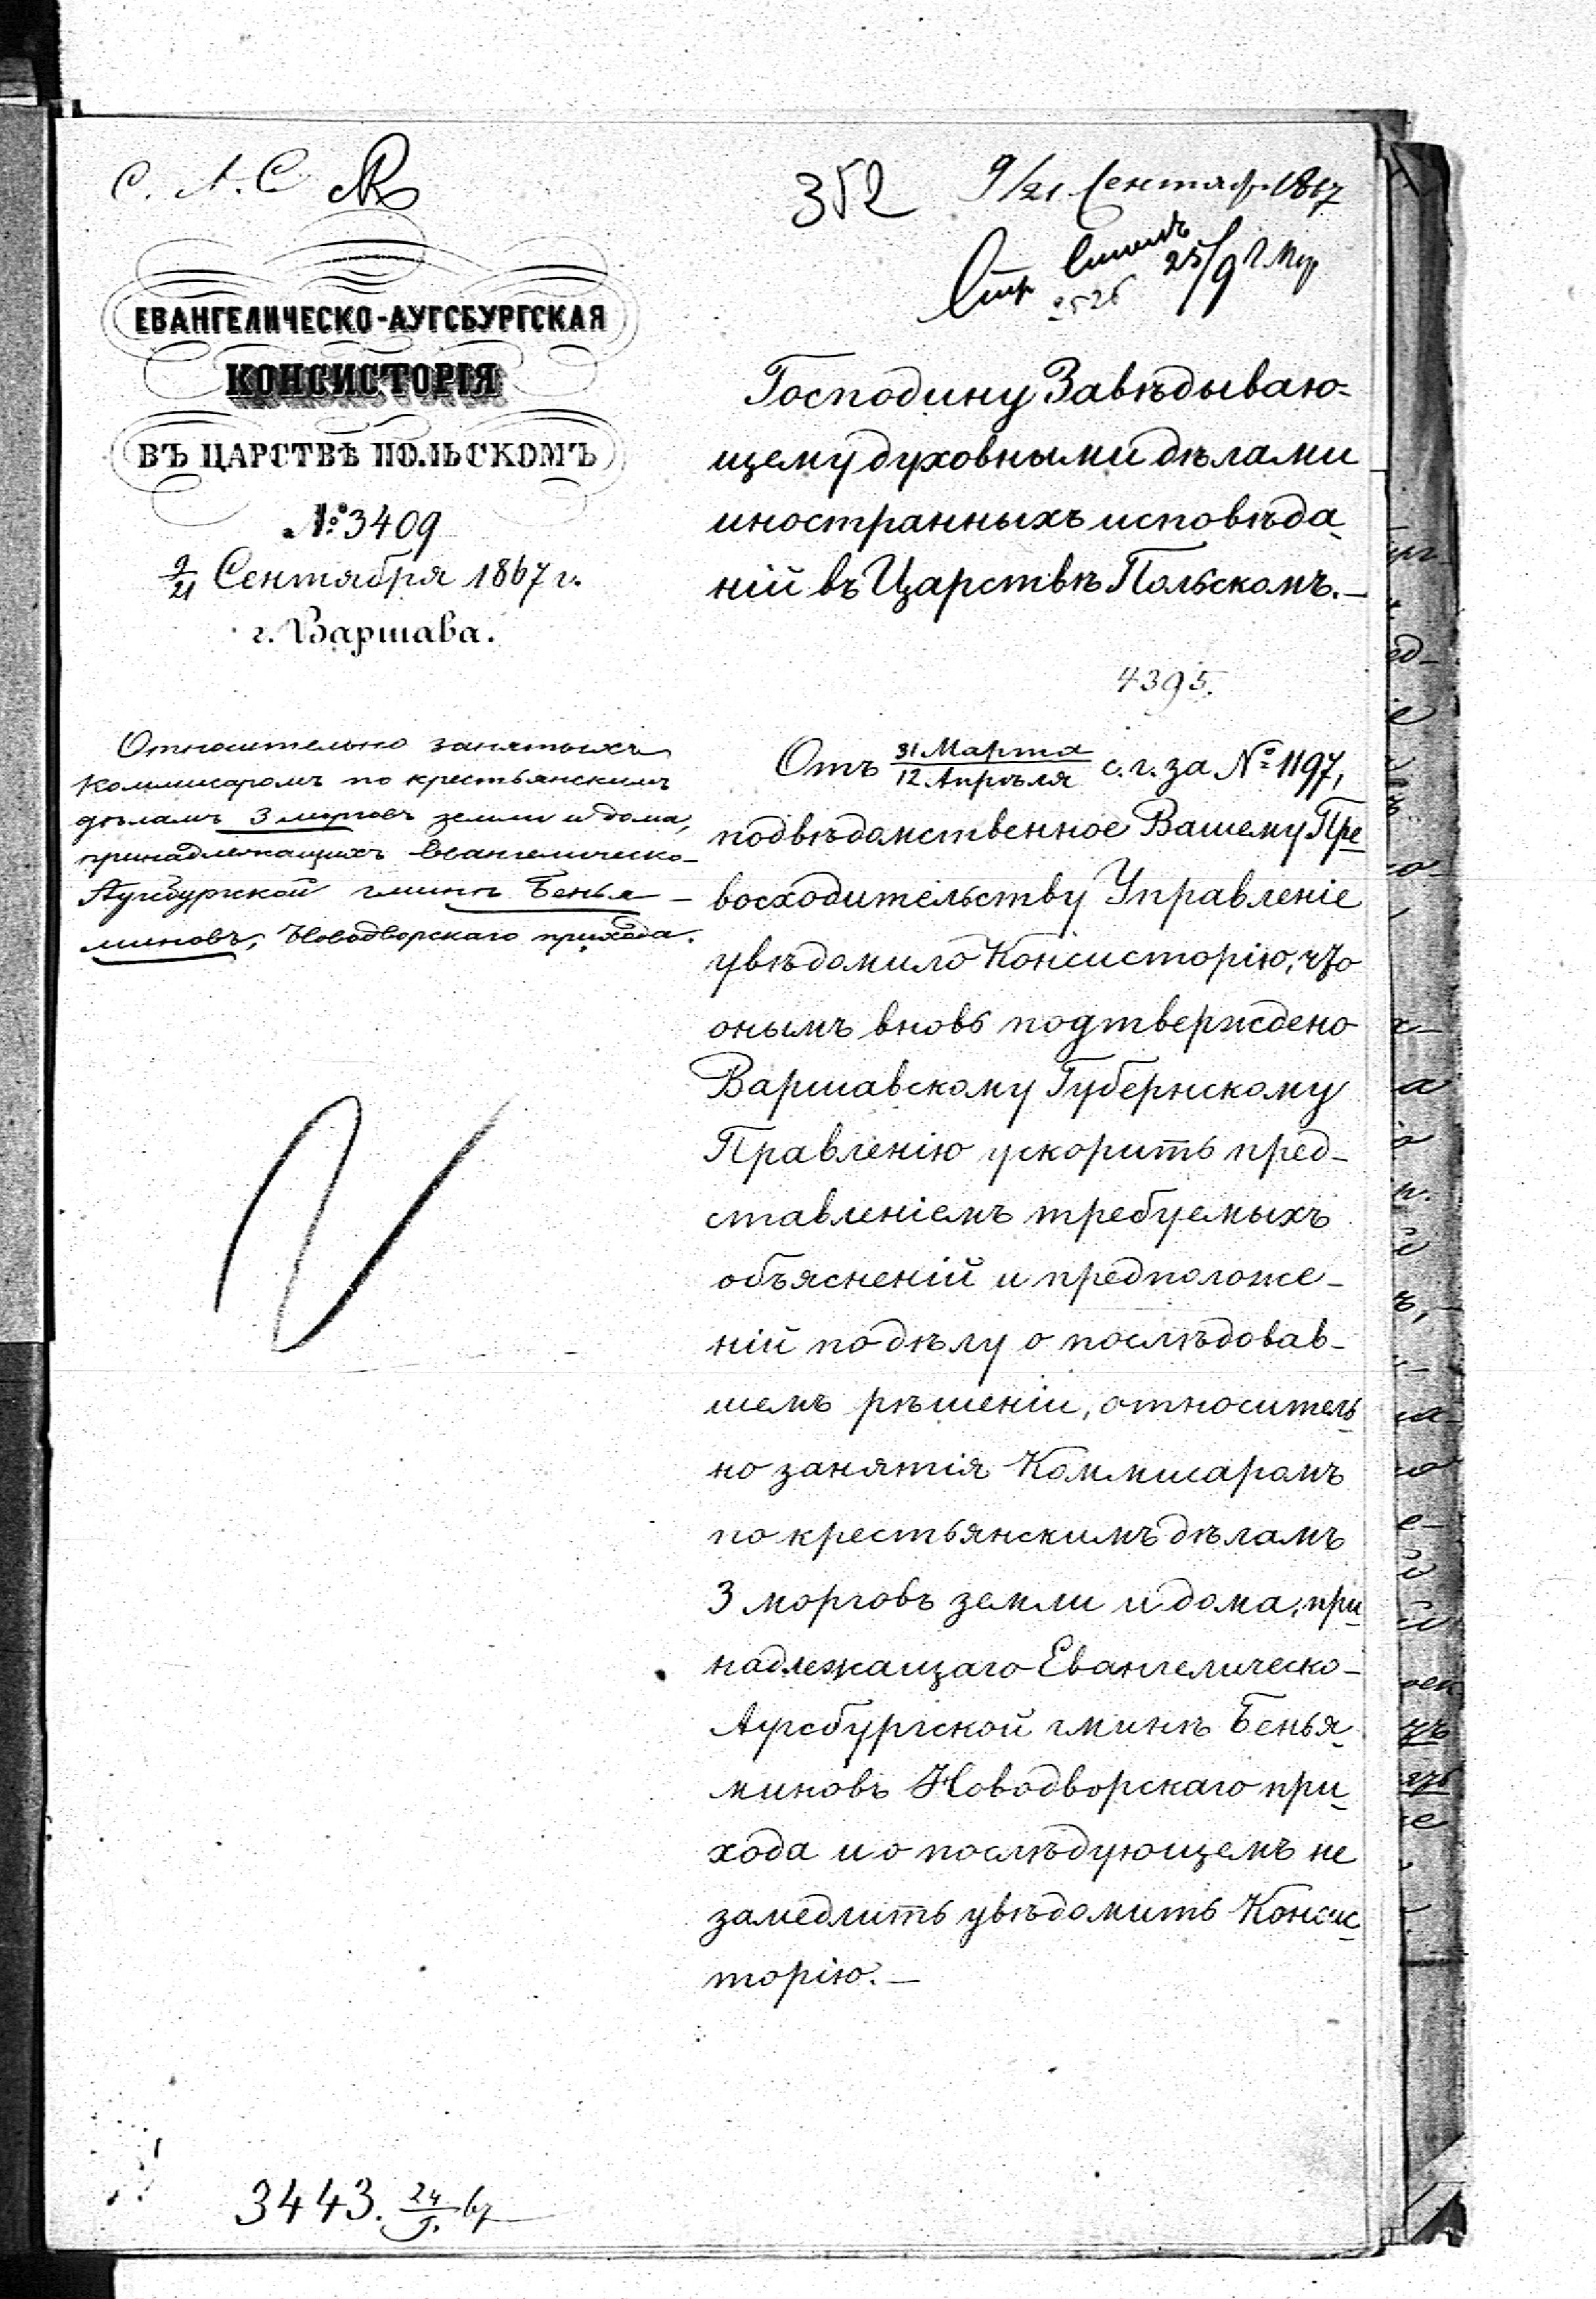 С. А. С
352
9/21 Сентяб. 1867
25/9
2526
ЕВАНГЕЛИЧЕСКО-АУГСБУРГСКАЯ
КОНСИСТОРІЯ
ВЪ ЦАРСТВѢ ПОЛЬСКОМЪ
№ 3409
9/21 Сентября 1867 г.
г. Варшава.
Относительно занятыхъ
Коммисаромъ по крестьянскимъ
дѣламъ 3 морговъ земли и дома,
принадлежащихъ Евангелическо-
Аугсбургской гминѣ Бенья-
миновъ, Новодворскаго прихода.
Господину Завѣдываю-
щему духовными дѣлами
иностранныхъ исповѣда-
ній въ Царствѣ Польскомъ.—
4395.
Отъ 31 Марта/12 Апрѣля с. г. за № 1197,
подвѣдомственное Вашему Пре-
восходительству Управленіе
увѣдомило Консисторію, что
онымъ вновь подтверждено
Варшавскому Губернскому
Правленію ускорить пред-
ставленіемъ требуемыхъ
объясненій и предположе-
ній по дѣлу о послѣдовав-
шемъ рѣшеніи, относитель-
но занятія Коммисаромъ
по крестьянскимъ дѣламъ
3 морговъ земли и дома, при-
надлежащаго Евангелическо-
Аугсбургской гминѣ Бенья-
миновъ Новодворскаго при-
хода и о послѣдующемъ не
замедлить увѣдомить Консис-
торію.—
3443. 24/9. 67